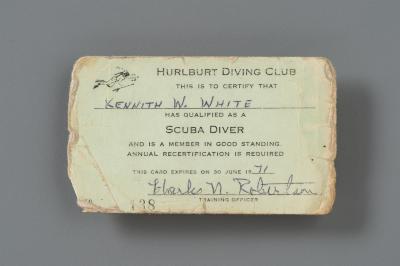 HURLBURT DIVING CLUB
THIS IS TO CERTIFY THAT
KENNITH W. WHITE
HAS QUALIFIED AS A
SCUBA DIVER
AND IS A MEMBER IN GOOD STANDING.
ANNUAL RECERTIFICATION IS REQUIRED
THIS CARD EXPIRES ON 30 JUNE 1971
Charles N. Robertson
TRAINING OFFICER
138